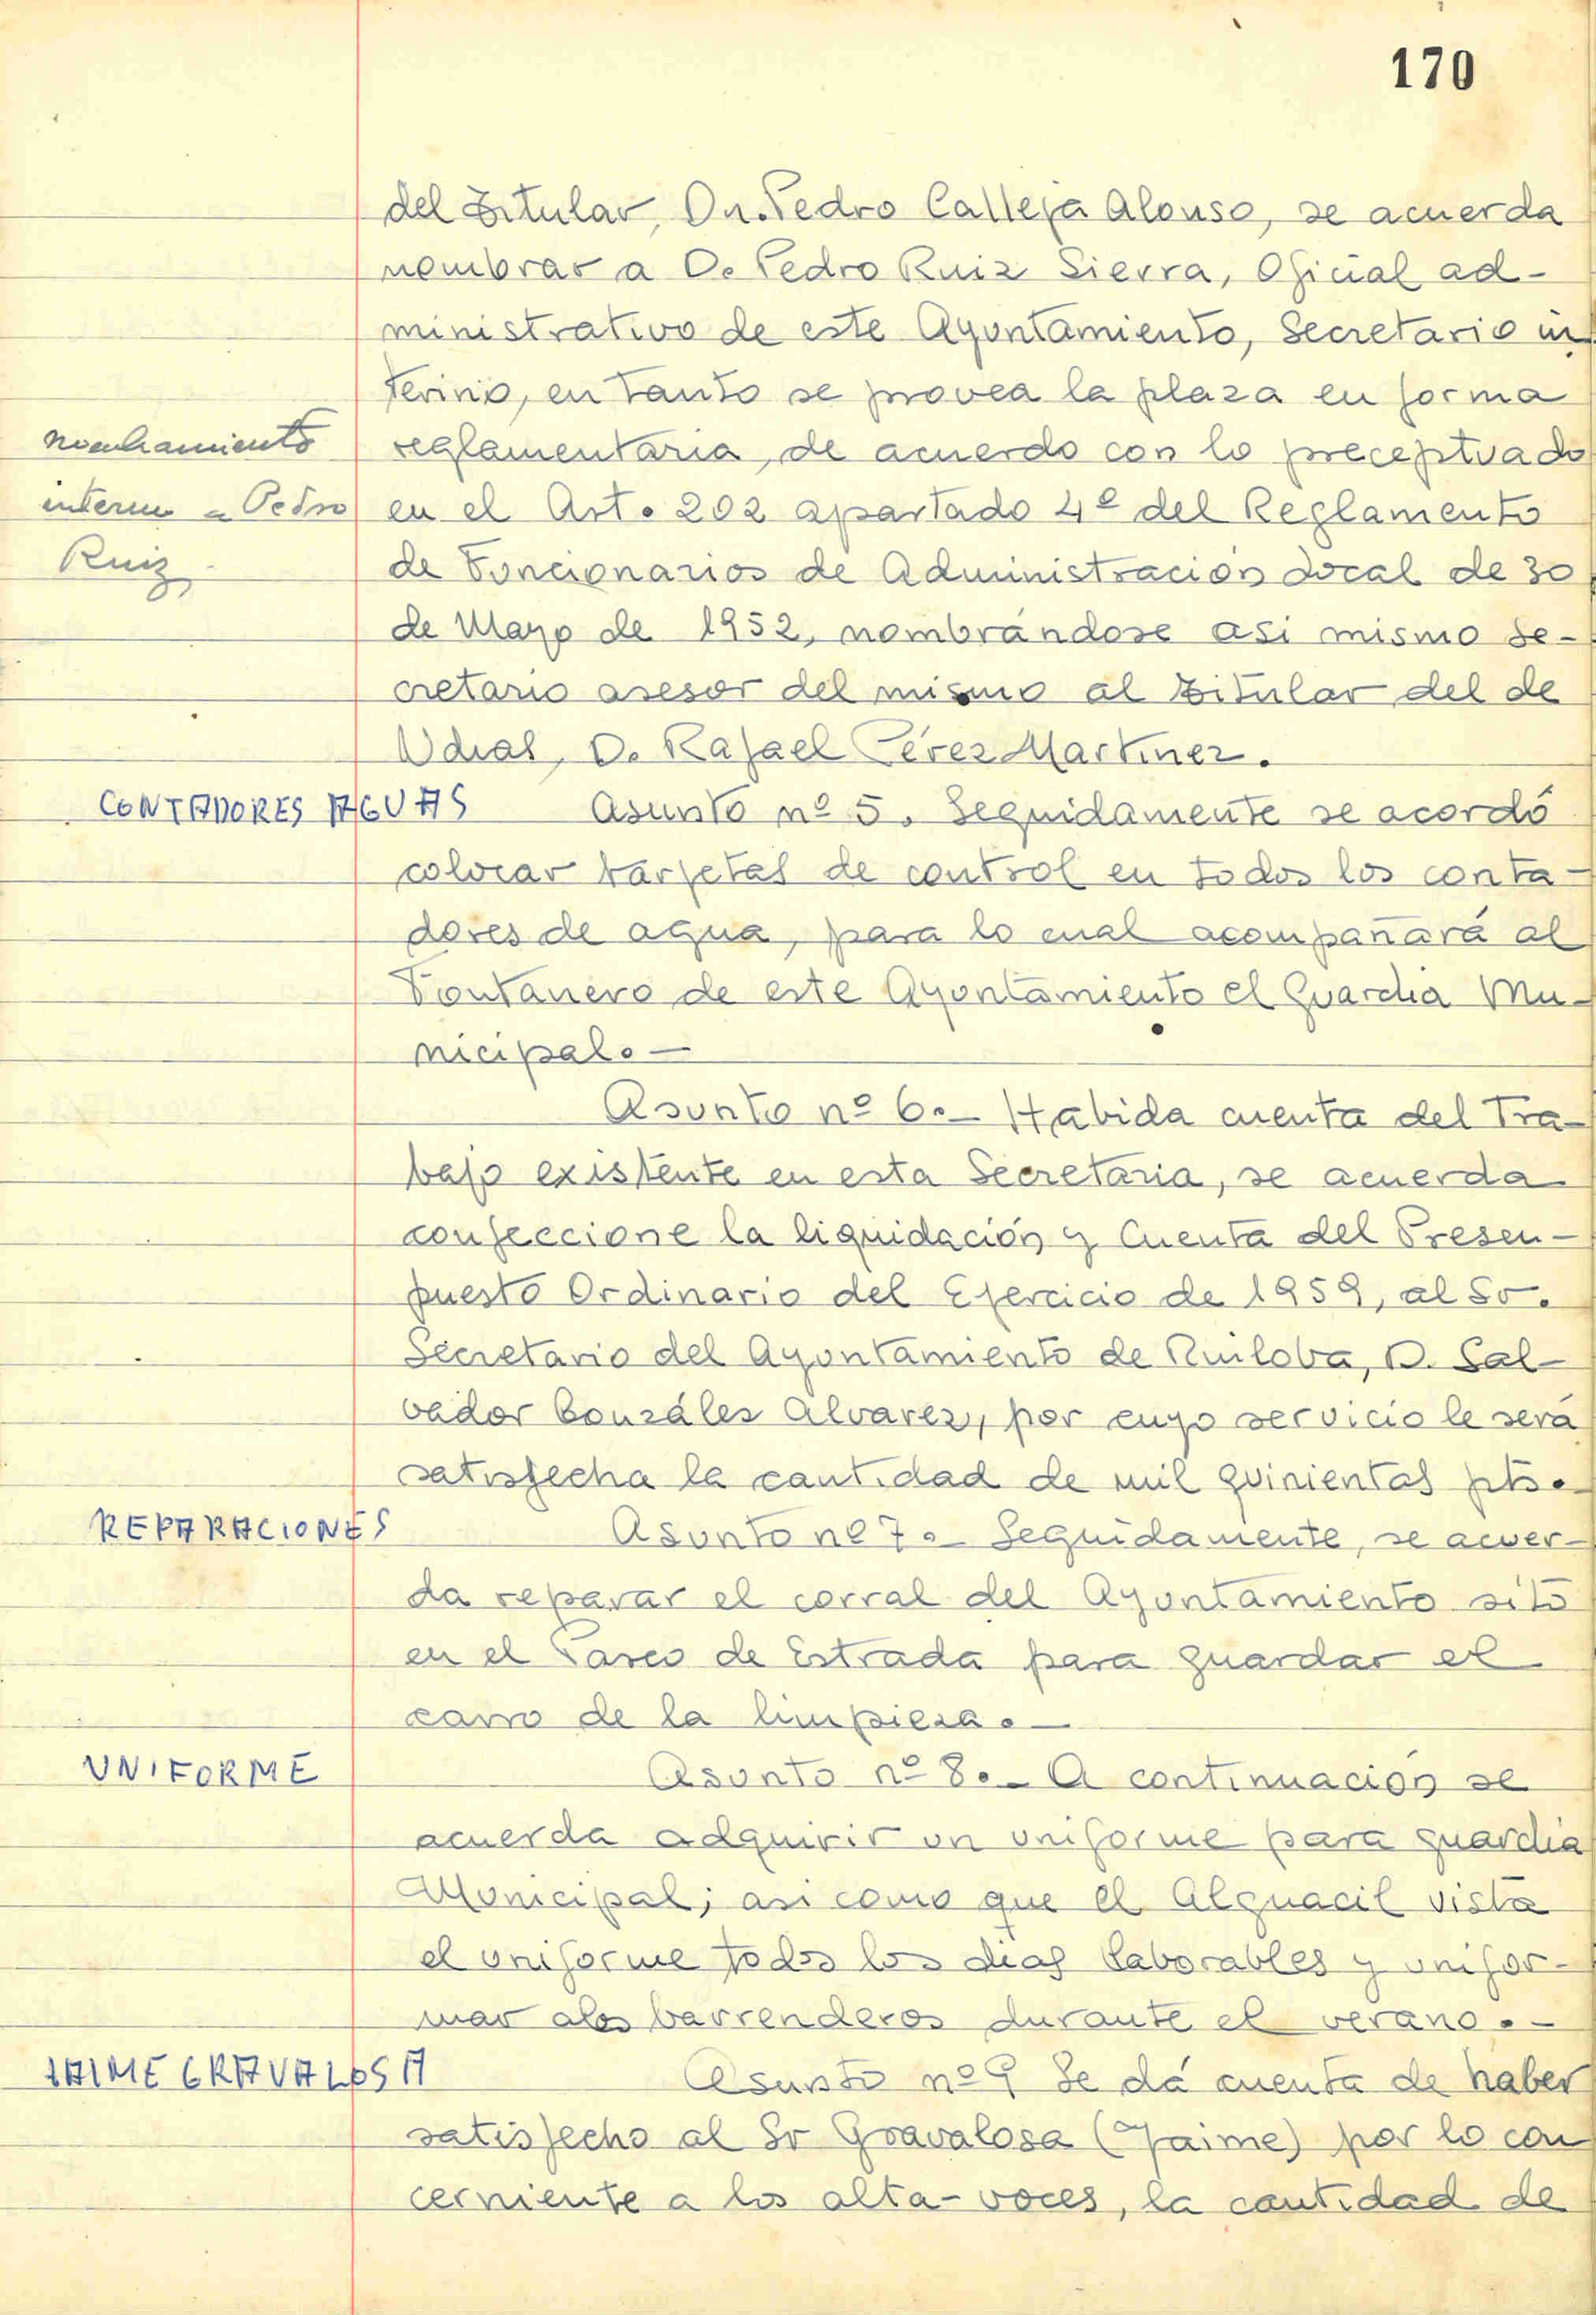 170
del Titular, Dn. Pedro Calleja Alonso, se acuerda
nombrar a D. Pedro Ruiz Sierra, Oficial ad-
ministrativo de este Ayuntamiento, Secretario in
terino, en tanto se provea la plaza en forma
nombramiento
reglamentaria, de acuerdo con lo preceptuado
interino a Pedro
en el Art. 202 apartado 4º del Reglamento
Ruiz
de Funcionarios de Administración Local de 30
de Mayo de 1952, nombrándose asi mismo Se-
cretario asesor del mismo al Titular del de
Udias, D. Rafael Pérez Martinez.
CONTADORES AGUAS
Asunto nº 5. Seguidamente se acordó
colocar tarjetas de control en todos los conta-
dores de agua, para lo cual acompañará al
Fontanero de este Ayuntamiento el Guardia Mu-
nicipal.-
Asunto nº 6.- Habida cuenta del Tra-
bajo existente en esta Secretaria, se acuerda
confeccione la liquidación y Cuenta del Presen-
puesto Ordinario del Ejercicio de 1959, al Sr.
Secretario del Ayuntamiento de Ruiloba, D. Sal-
vador Gonzáles Alvarez, por cuyo servicio le será
satisfecha la cantidad de mil quinientas pts.
REPARACIONES
Asunto nº 7.- Seguidamente, se acuer-
da reparar el corral del Ayuntamiento sito
en el Paseo de Estrada para guardar el
carro de la limpieza.-
UNIFORME
Asunto nº 8.- A continuación se
acuerda adquirir un uniforme para guardia
Municipal; asi como que el Alguacil vista
el uniforme todos los dias laborables y unifor-
mar a los barrenderos durante el verano.-
JAIME GRAVALOSA
Asunto nº 9 Se dá cuenta de haber
satisfecho al Sr Gravalosa (Jaime) por lo con
cerniente a los alta-voces, la cantidad de